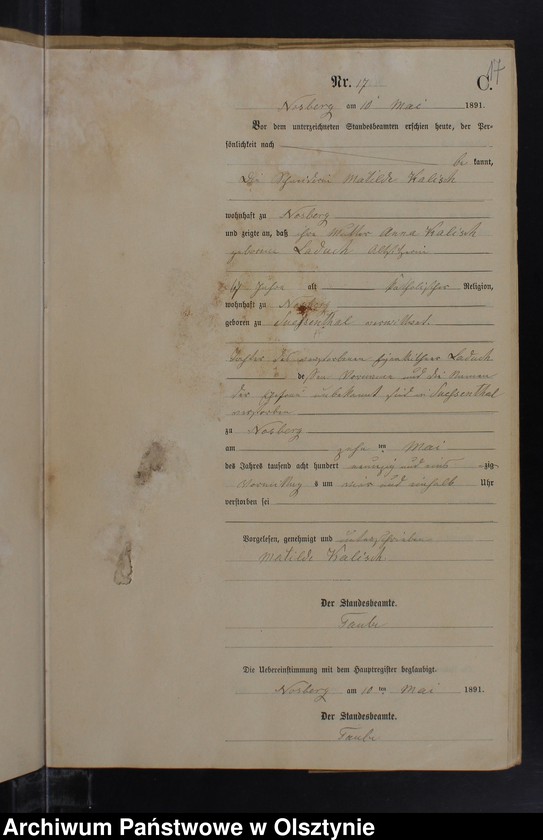 17
Nr. 17
C.
Nosberg am 10 Mai 1891.
Vor dem unterzeichneten Standesbeamten erschien heute, der Per-
sönlichkeit nach
be kannt,
die Schneiderin Matilde Kalisch
wohnhaft zu Nosberg
und zeigte an, daß ihre Mutter Anna Kalisch
geborene Ladach Altsitzerin
67 Jahre alt katholischer Religion,
wohnhaft zu Nosberg
geboren zu Suessenthal verwittwet
Tochter des verstorbenen Eigenkäthner Ladach
dessen Vorname und die Namen
der Ehefrau unbekannt sind in Suessenthal
verstorben
zu Nosberg
am zehn ten Mai
des Jahres tausend acht hundert neunzig und eins zig
Vormittag s um vier und einhalb Uhr
verstorben sei
Vorgelesen, genehmigt und unterschrieben
Matilde Kalisch
Der Standesbeamte.
Taube
Die Uebereinstimmung mit dem Hauptregister beglaubigt.
Nosberg am 10 ten Mai 1891.
Der Standesbeamte.
Taube
Archiwum Państwowe w Olsztynie